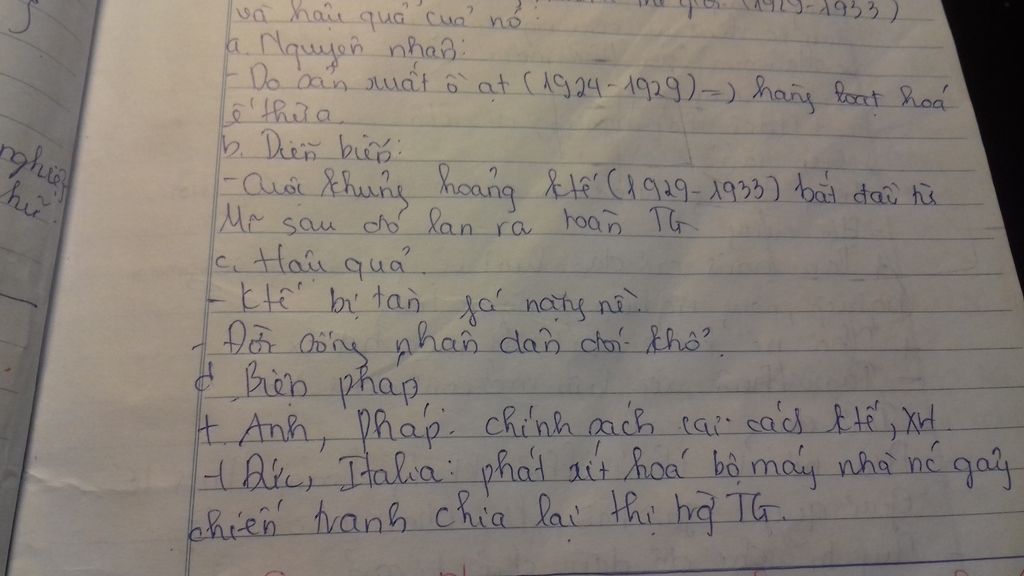 và hậu quả của nó: (1929-1933)
a. Nguyên nhân:
- Do sản xuất ồ ạt (1924-1929) => hàng loạt hoá
ế thừa.
b. Diễn biến:
- Cuộc khủng hoảng ktế (1929-1933) bắt đầu từ
Mĩ sau đó lan ra toàn TG
c. Hậu quả.
- Ktế bị tàn fá nặng nề.
- Đời sống nhân dân đói khổ.
d. Biện pháp
+ Anh, Pháp: chính sách cải cách ktế, XH.
+ Đức, Italia: phát xít hoá bộ máy nhà nc gây
chiến tranh chia lại thị trg TG.